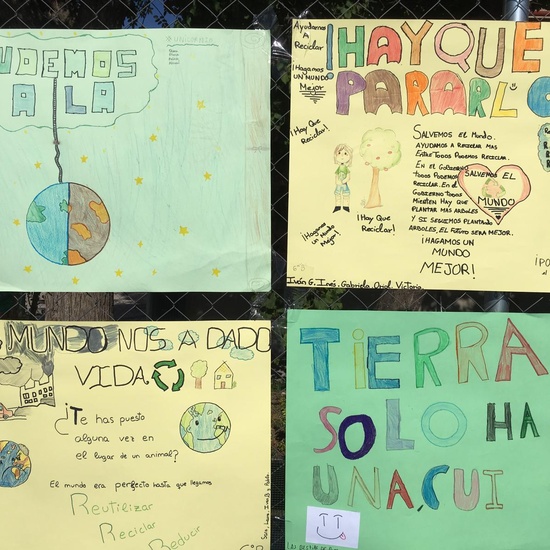 UDEMOS
A LA
Ayudamos
A
Reciclar
¡Hagamos
UN MUNDO
Mejor
¡HAY QUE
PARARLO
¡Hay Que
Reciclar!
¡Hay Que
Reciclar!
¡Hagamos
un Mundo
Mejor!
SALVEMOS EL MUNDO.
AYUDAMOS A RECICLAR MAS
ENTRE TODOS PODEMOS RECICLAR.
EN EL GOBIERNO
TODOS PODEMOS
RECICLAR. EN EL
GOBIERNO TODOS
MIENTEN HAY QUE
PLANTAR MAS ARBOLES
Y SI SEGUIMOS PLANTANDO
ARBOLES, EL FUTURO SERA MEJOR.
¡HAGAMOS UN
MUNDO
MEJOR!
SALVEMOS EL
MUNDO
Iván G. Inés. Gabriela. Oriol. Victoria
MUNDO NOS A DADO
VIDA
¿Te has puesto
alguna vez en
el lugar de un animal?
El mundo era perfecto hasta que llegamos
Reutilizar
Reciclar
Reducir
TiERRA
SOLO HA
UNA, CUI